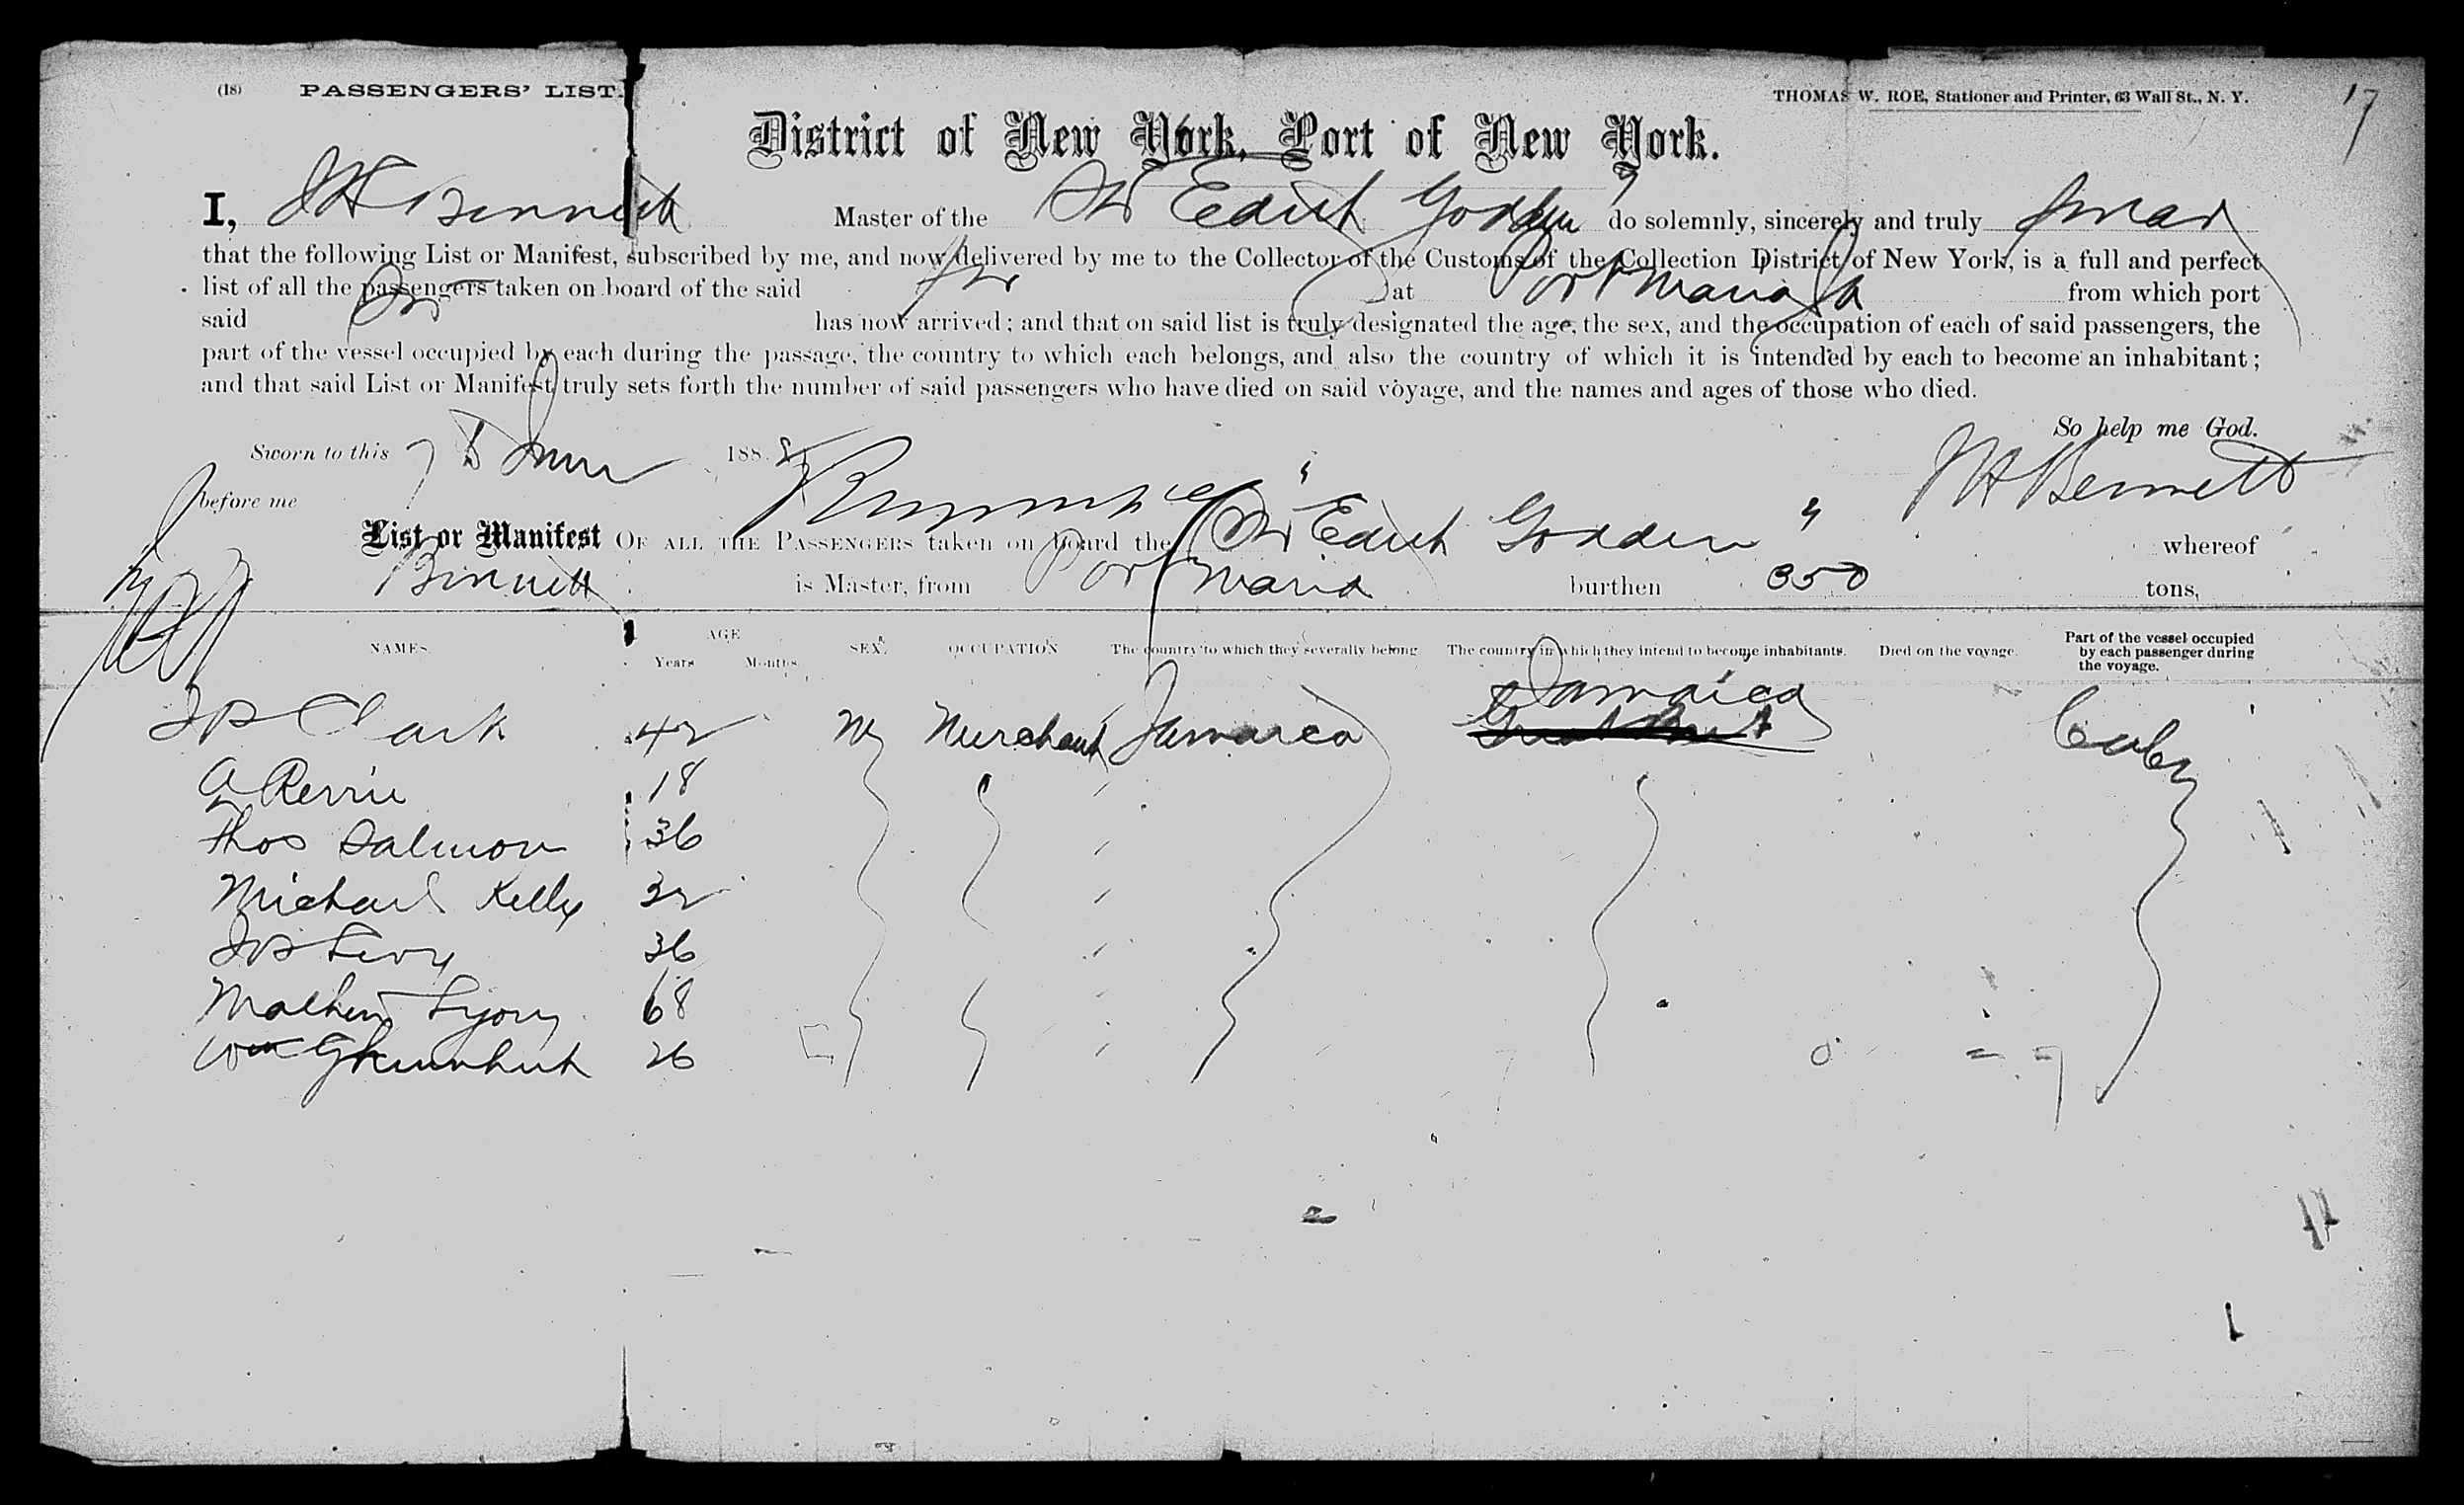 (18) PASSENGERS' LIST. THOMAS W. ROE, Stationer and Printer, 63 Wall St., N. Y. 17
District of New York, Port of New York.
I, J H Bennett Master of the Str Edith Godden do solemnly, sincerely and truly swear
that the following List or Manifest, subscribed by me, and now delivered by me to the Collector of the Customs of the Collection District of New York, is a full and perfect
list of all the passengers taken on board of the said Str at Port Maria Ja from which port
said Str has now arrived; and that on said list is truly designated the age, the sex, and the occupation of each of said passengers, the
part of the vessel occupied by each during the passage, the country to which each belongs, and also the country of which it is intended by each to become an inhabitant;
and that said List or Manifest truly sets forth the number of said passengers who have died on said voyage, and the names and ages of those who died.
So help me God.
Sworn to this 7 June 188
before me J H Bennett
List or Manifest OF ALL THE PASSENGERS taken on board the Str "Edith Godden" whereof
Bennett is Master, from Port Maria burthen 350 tons,
NAMES AGE Years Months SEX. OCCUPATION The country to which they severally belong The country in which they intend to become inhabitants. Died on the voyage. Part of the vessel occupied by each passenger during the voyage.
Jos Clark 42 M Merchant Jamaica Jamaica Cabin
A Rerrie 18
Thos Salmon 36
Michael Kelly 32
Jos Levy 36
Mathew Lyons 68
Wm 26